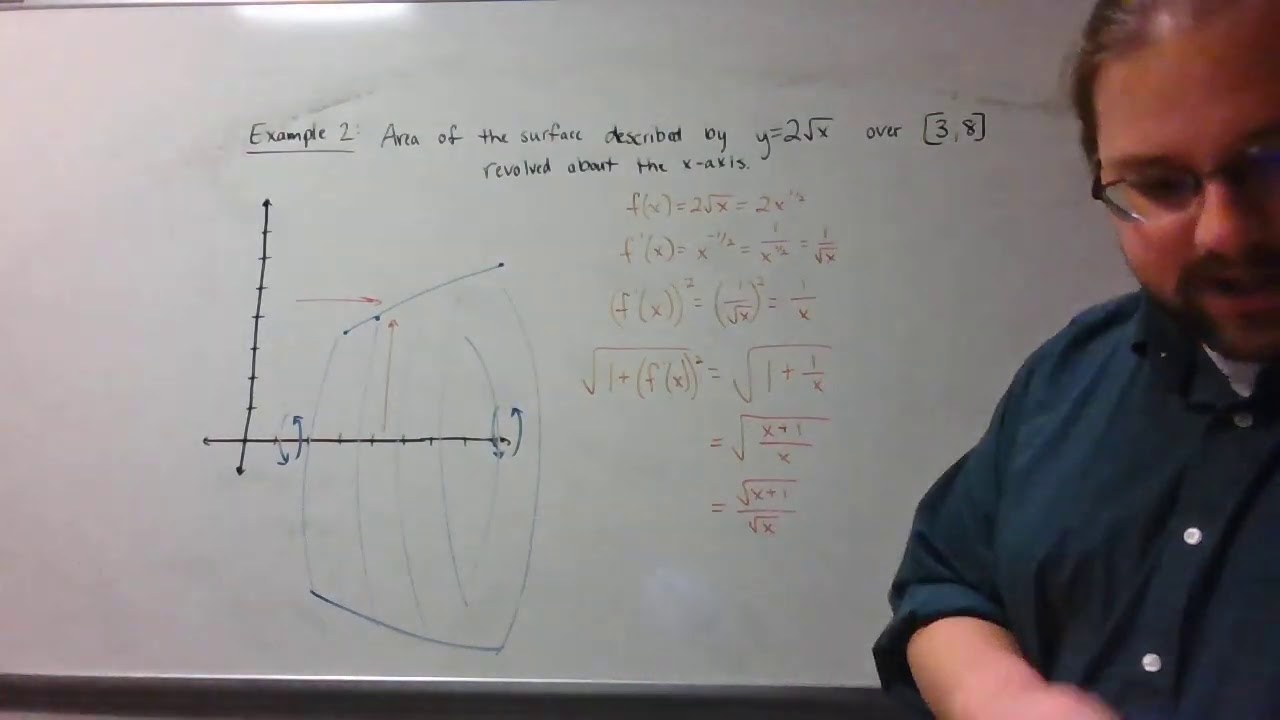 Example 2: Area of the surface described by y=2√x over [3,8]
revolved about the x-axis.
f(x)=2√x = 2x^{1/2}
f'(x)= x^{-1/2} = 1/x^{1/2} = 1/√x
(f'(x))^2 = (1/√x)^2 = 1/x
√(1+(f'(x))^2) = √(1+1/x)
= √((x+1)/x)
= √(x+1)/√x